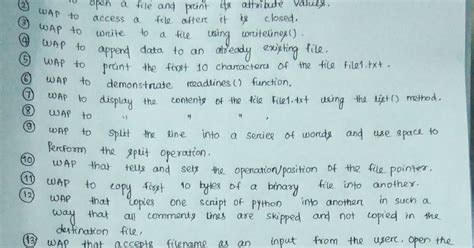 ② to open a file and print its attribute values.
③ WAP to access a file after it is closed.
④ WAP to write to a file using writelines().
WAP to append data to an already existing file.
⑤ WAP to print the first 10 characters of the file file1.txt.
⑥ WAP to demonstrate readlines() function.
⑦ WAP to display the contents of the file File1.txt using the list() method.
⑧ WAP to " " " ,
⑨ WAP to split the line into a series of words and use space to
Perform the split operation.
⑩ WAP that tells and sets the operation/position of the file pointer.
⑪ WAP to copy first 10 bytes of a binary file into another.
⑫ WAP that copies one script of python into another in such a
way that all comments lines are skipped and not copied in the
destination file.
⑬ WAP that accepts filename as an input from the user. Open the